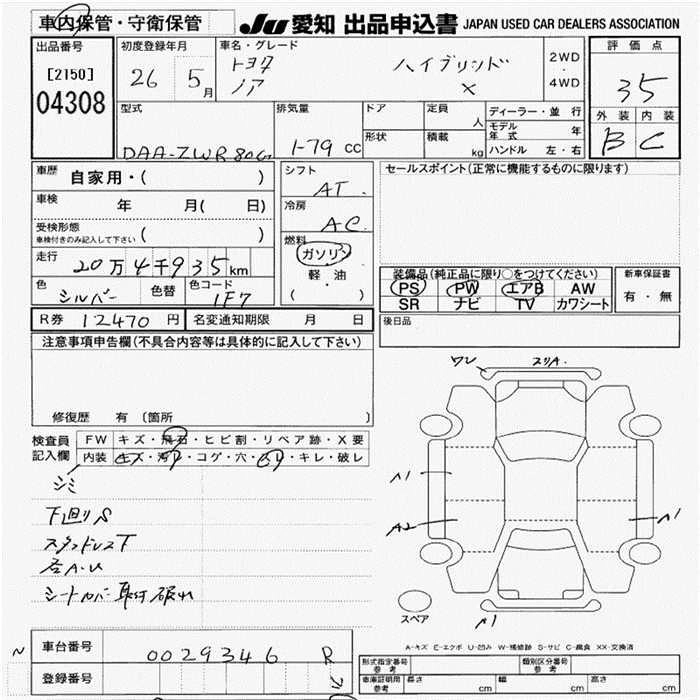 車内保管・守衛保管
JU 愛知 出品申込書 JAPAN USED CAR DEALERS ASSOCIATION
出品番号
[2150]
04308
初度登録年月
26 5月
車名・グレード
トヨタ
ノア
ハイブリッド
X
2WD
・
4WD
評価点
35
外装 内装
B C
型式
DAA-ZWR80G
排気量
1-79 CC
ドア
形状
定員 人
積載 kg
ディーラー・並行
モデル年式 年
ハンドル 左・右
車歴 自家用・( )
車検 年 月( 日)
受検形態
車検付きのみ記入して下さい ( )
走行
20万4千935km
色 シルバー 色替
色コード 1F7
シフト
AT
冷房
AC
燃料
ガソリン
軽油
( )
セールスポイント(正常に機能するものに限ります)
装備品(純正品に限り○をつけてください)
PS PW エアB AW
SR ナビ TV カワシート
新車保証書
有・無
R券 12470円
名変通知期限 月 日
後日品
注意事項申告欄(不具合内容等は具体的に記入して下さい)
修復歴 有 〔箇所 〕
検査員記入欄
FW キズ・飛石・ヒビ割・リペア跡・X要
内装 キズ・汚レ・コゲ・穴・・キレ・破レ
シミ
下回りS
スタッドレス下
各A.U
シートカバー取付破れ
ワレ スリA.
A1
A2
A1
A1
スペア
A-キズ E-エクボ U-凹み W-補修跡 S-サビ C-腐食 XX-交換済
車台番号 0029346 R
登録番号
形式指定番号 参考
類別区分番号 参考
車庫証明用 参考 長さ cm 幅 cm 高さ cm